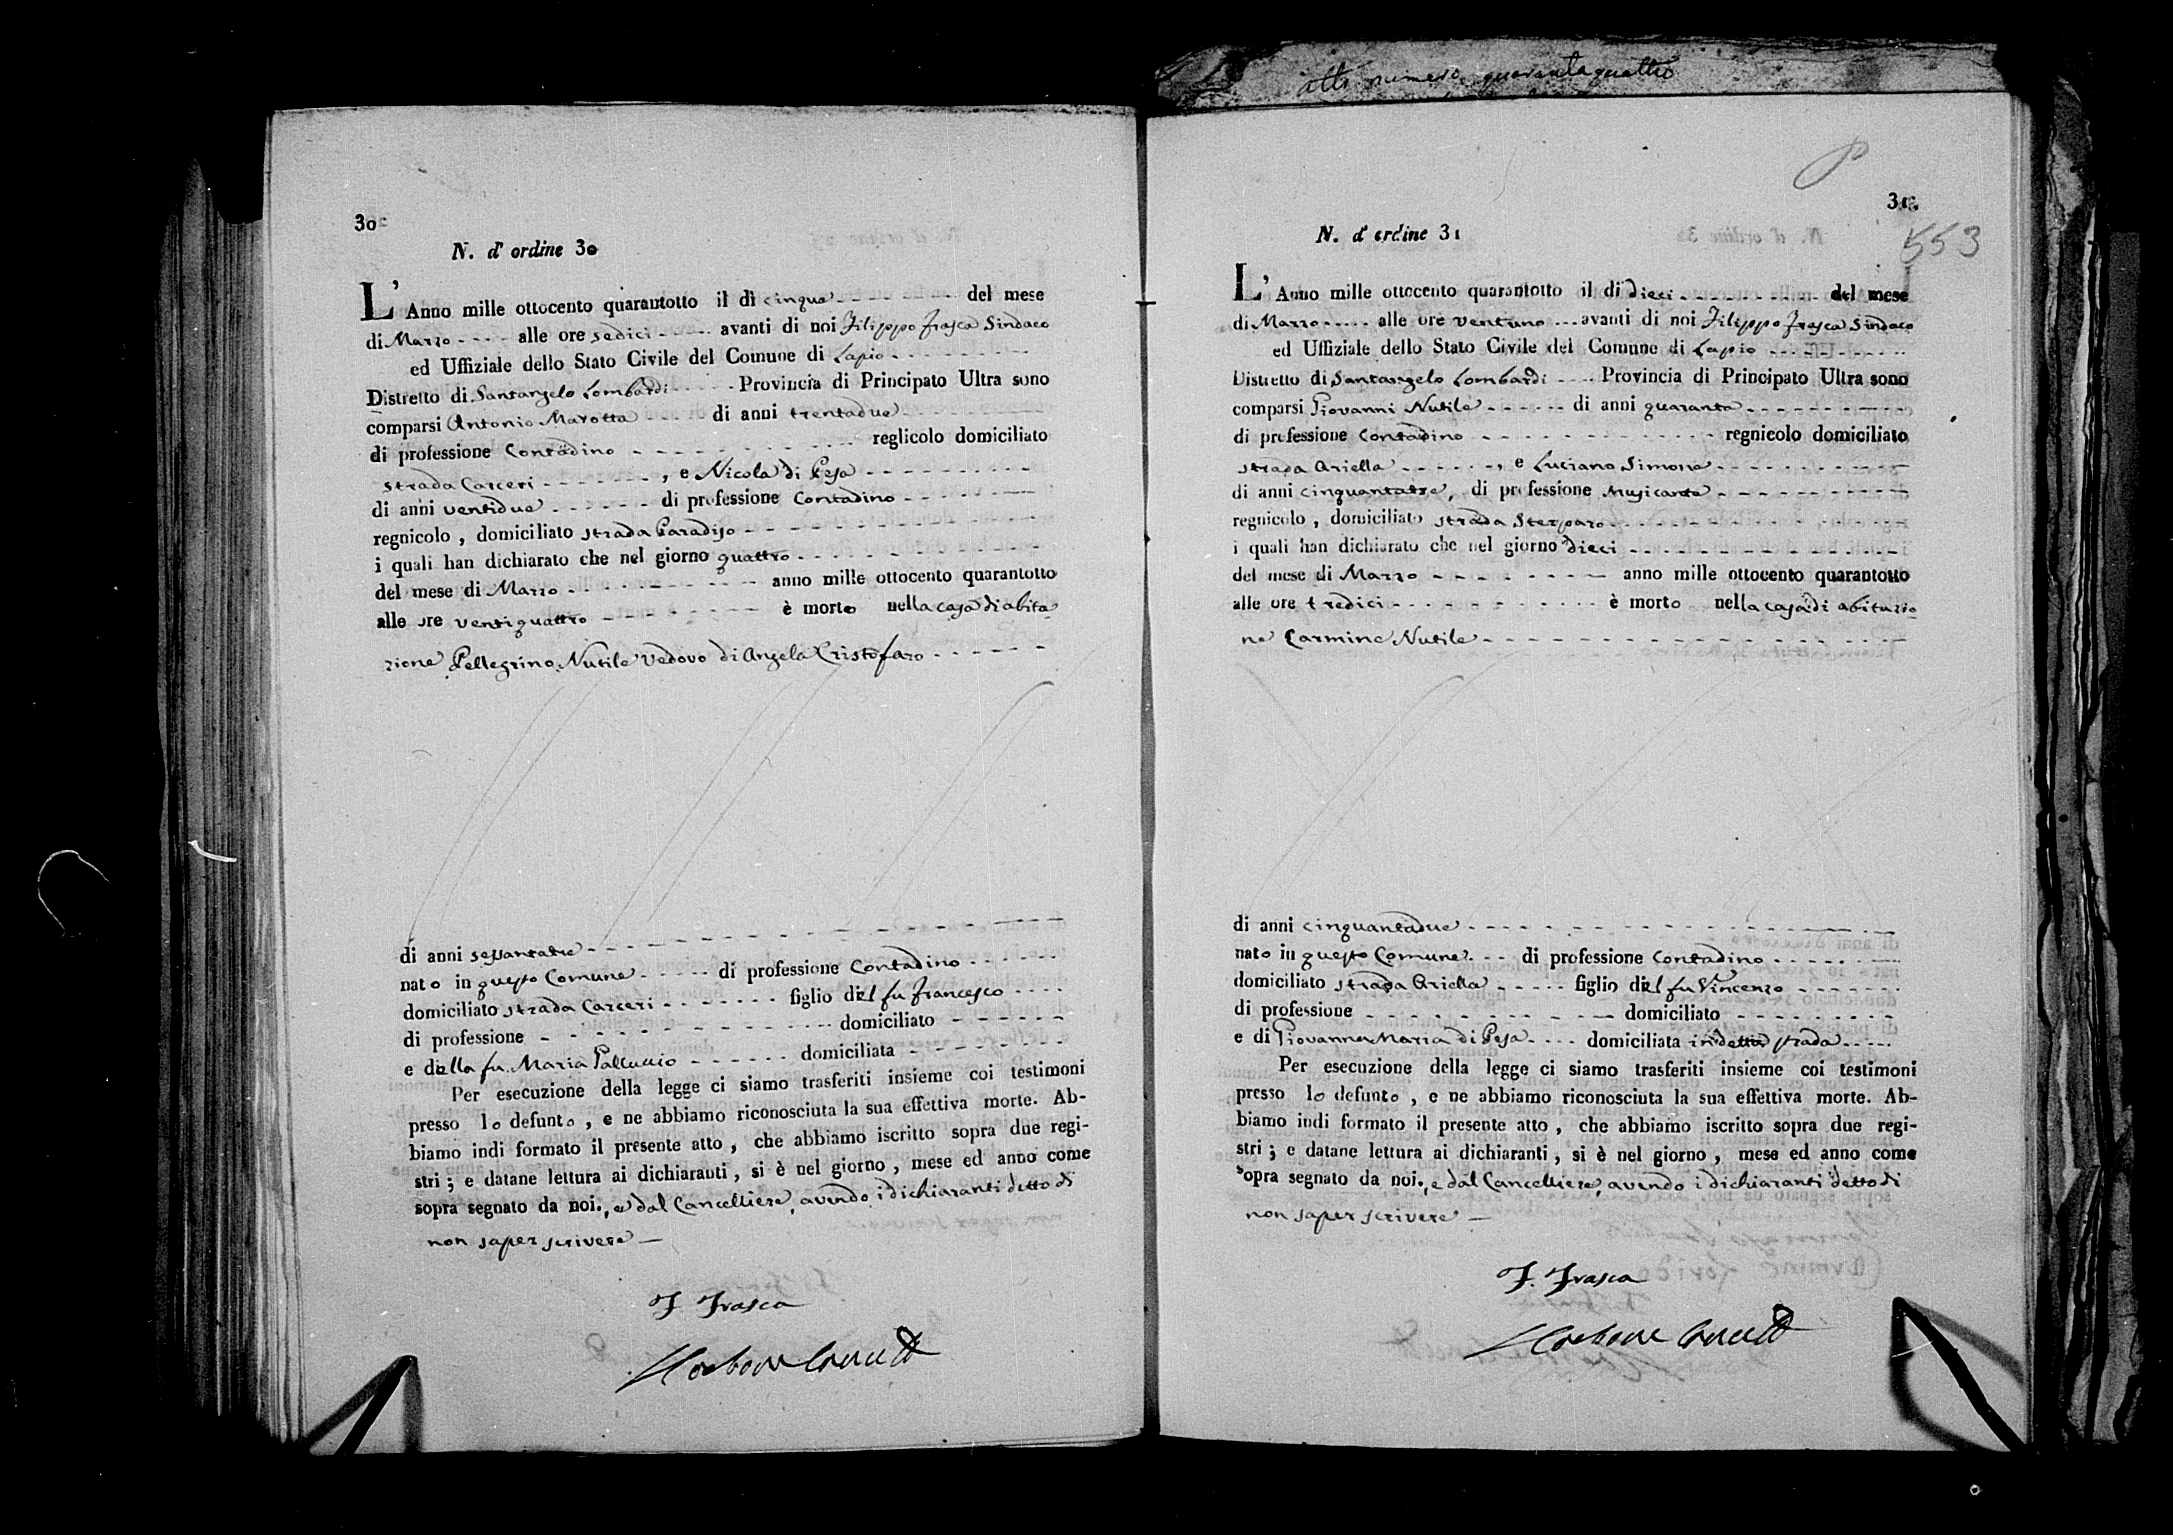 atti numero quarantaquattro
30
N. d' ordine 30
L' Anno mille ottocento quarantotto il dì cinque del mese
di Marzo alle ore sedici avanti di noi Filippo Frasca Sindaco
ed Uffiziale dello Stato Civile del Comune di Lapio
Distretto di Santangelo Lombardi Provincia di Principato Ultra sono
comparsi Antonio Marotta di anni trentadue
di professione Contadino reglicolo domiciliato
strada Carceri , e Nicola di Pesa
di anni ventidue di professione Contadino
regnicolo , domiciliato strada Paradiso
i quali han dichiarato che nel giorno quattro
del mese di Marzo anno mille ottocento quarantotto
alle ore ventiquattro è morto nella casa di abita
zione Pellegrino Nutile Vedovo di Angela Cristofaro
di anni sessantatre
nato in questo Comune di professione Contadino
domiciliato strada Carceri figlio del fu Francesco
di professione domiciliato
e della fu Maria domiciliata
Per esecuzione della legge ci siamo trasferiti insieme coi testimoni
presso lo defunto , e ne abbiamo riconosciuta la sua effettiva morte. Ab-
biamo indi formato il presente atto , che abbiamo iscritto sopra due regi-
stri ; e datane lettura ai dichiaranti , si è nel giorno , mese ed anno come
sopra segnato da noi., e dal Cancelliere, avendo i dichiaranti detto di
non saper scrivere
F. Frasca
31
553
N. d' ordine 31
L' Anno mille ottocento quarantotto il di dieci del mese
di Marzo alle ore ventuno avanti di noi Filippo Frasca Sindaco
ed Uffiziale dello Stato Civile del Comune di Lapio
Distretto di Santangelo Lombardi Provincia di Principato Ultra sono
comparsi Giovanni Nutile di anni quaranta
di professione Contadino regnicolo domiciliato
strada Ariella , e Luciano Simone
di anni cinquantatre, di professione Musicante
regnicolo , domiciliato strada Sterparo
i quali han dichiarato che nel giorno dieci
del mese di Marzo anno mille ottocento quarantotto
alle ore tredici è morto nella casa di abitazio
ne Carmine Nutile
di anni cinquantadue
nato in questo Comune di professione Contadino
domiciliato strada Ariella figlio del fu Vincenzo
di professione domiciliato
e di Giovanna Maria di Pesa domiciliata in detta strada
Per esecuzione della legge ci siamo trasferiti insieme coi testimoni
presso lo defunto , e ne abbiamo riconosciuta la sua effettiva morte. Ab-
biamo indi formato il presente atto , che abbiamo iscritto sopra due regi-
stri ; e datane lettura ai dichiaranti , si è nel giorno , mese ed anno come
sopra segnato da noi., e dal Cancelliere, avendo i dichiaranti detto di
non saper scrivere
F. Frasca